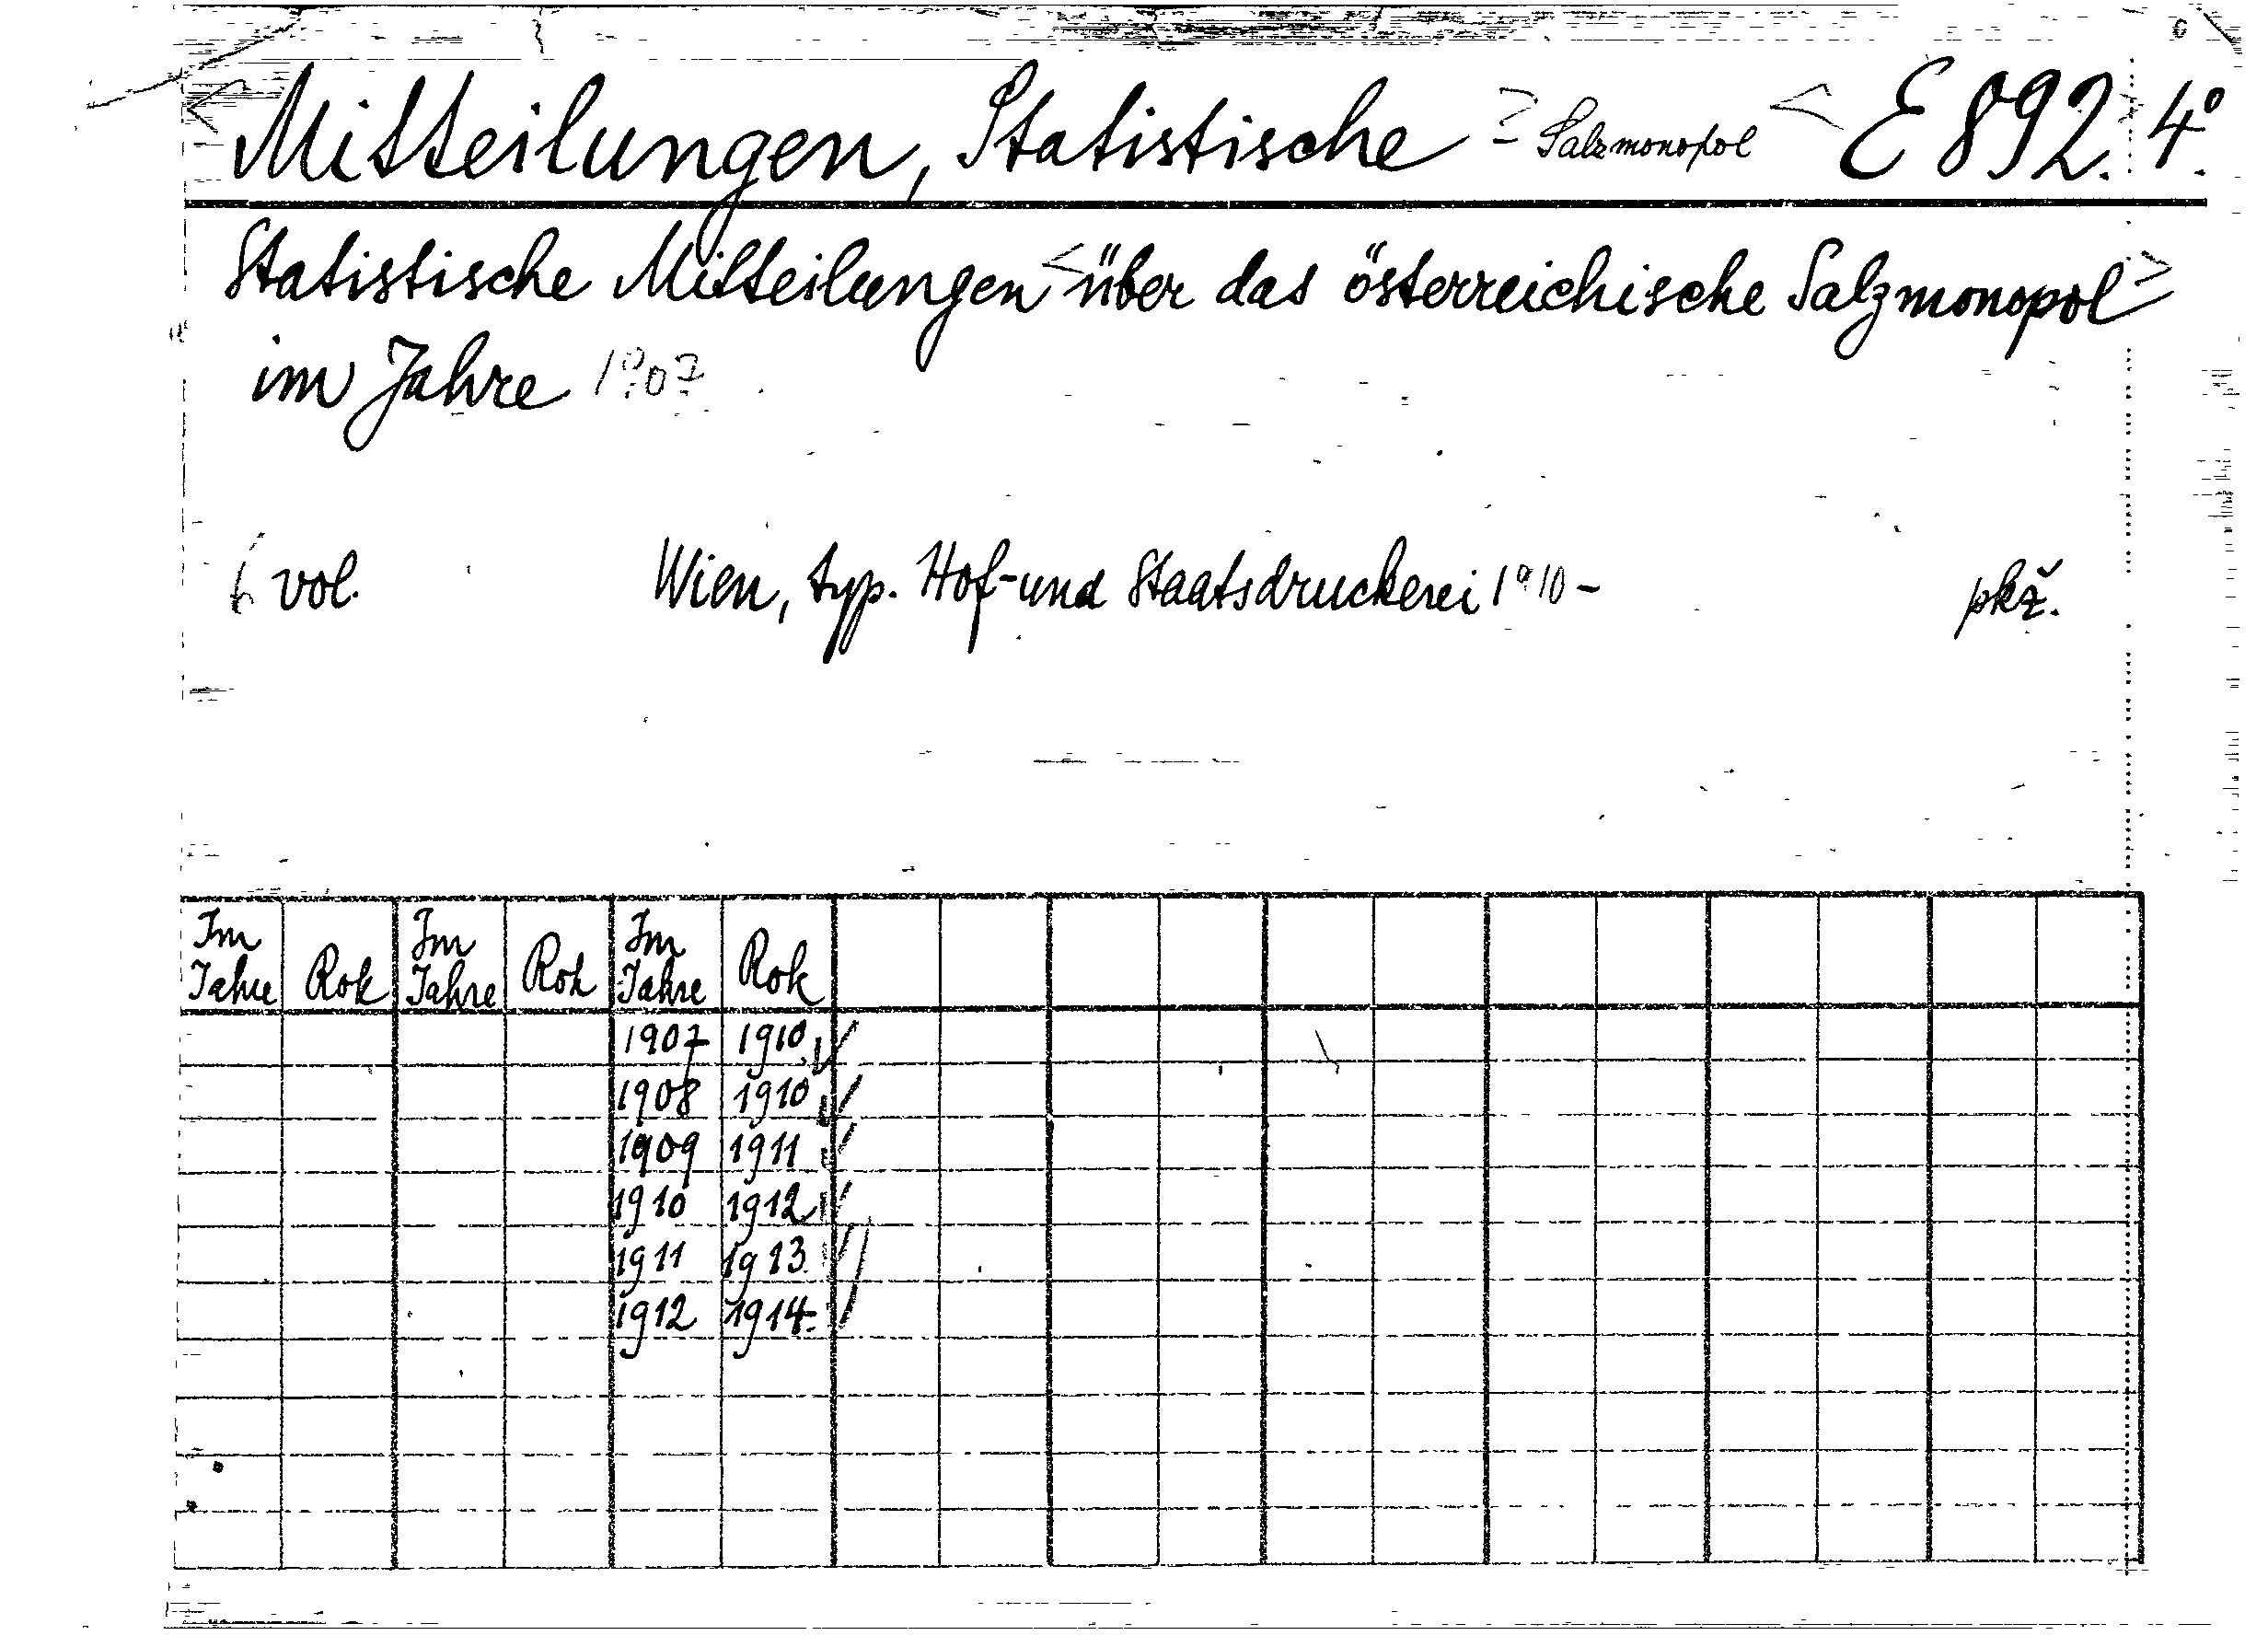 <Mitteilungen, Statistische> Salzmonopol < E 892. 4º.
Statistische Mitteilungen <über das österreichische Salzmonopol>
im Jahre 1907
6 vol. Wien, typ. Hof- und Staatsdruckerei 1910- pkž.
Im Jahre Rok Im Jahre Rok Im Jahre Rok
1907 1910
1908 1910
1909 1911
1910 1912
1911 1913
1912 1914